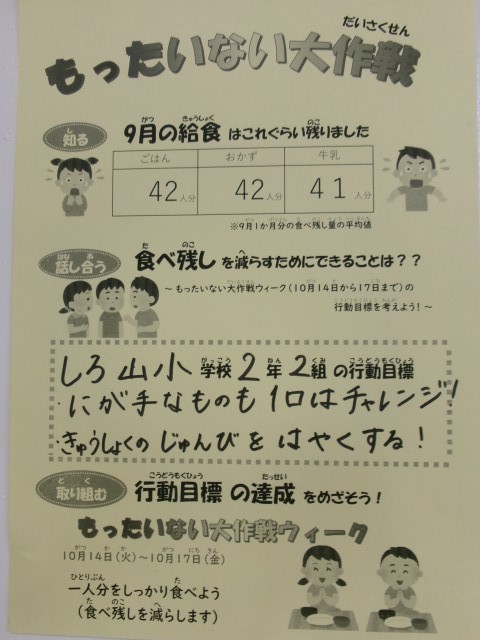 もったいない大作戦
知る 9月の給食 はこれぐらい残りました
ごはん おかず 牛乳
42人分 42人分 41人分
※9月1か月分の食べ残し量の平均値
話し合う 食べ残し を減らすためにできることは？？
～ もったいない大作戦ウィーク（10月14日から17日まで）の
行動目標を考えよう！～
しろ山小 学校 2年 2組 の行動目標
・にが手なものも1口はチャレンジ！
・きゅうしょくのじゅんびをはやくする！
取り組む 行動目標 の達成 をめざそう！
もったいない大作戦ウィーク
10月14日（火）～10月17日（金）
一人分をしっかり食べよう
（食べ残しを減らします）